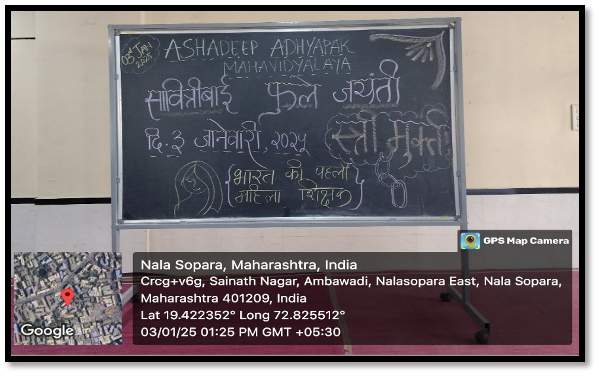 03rd JAN
2025
ASHADEEP ADHYAPAK
MAHAVIDYALAYA
सावित्रीबाई फुले जयंती
दि. ३ जानेवारी, २०२५
स्त्री मुक्ती
{भारत की पहली
महिला शिक्षक}
GPS Map Camera
Nala Sopara, Maharashtra, India
Crcg+v6g, Sainath Nagar, Ambawadi, Nalasopara East, Nala Sopara,
Maharashtra 401209, India
Lat 19.422352° Long 72.825512°
03/01/25 01:25 PM GMT +05:30
Google